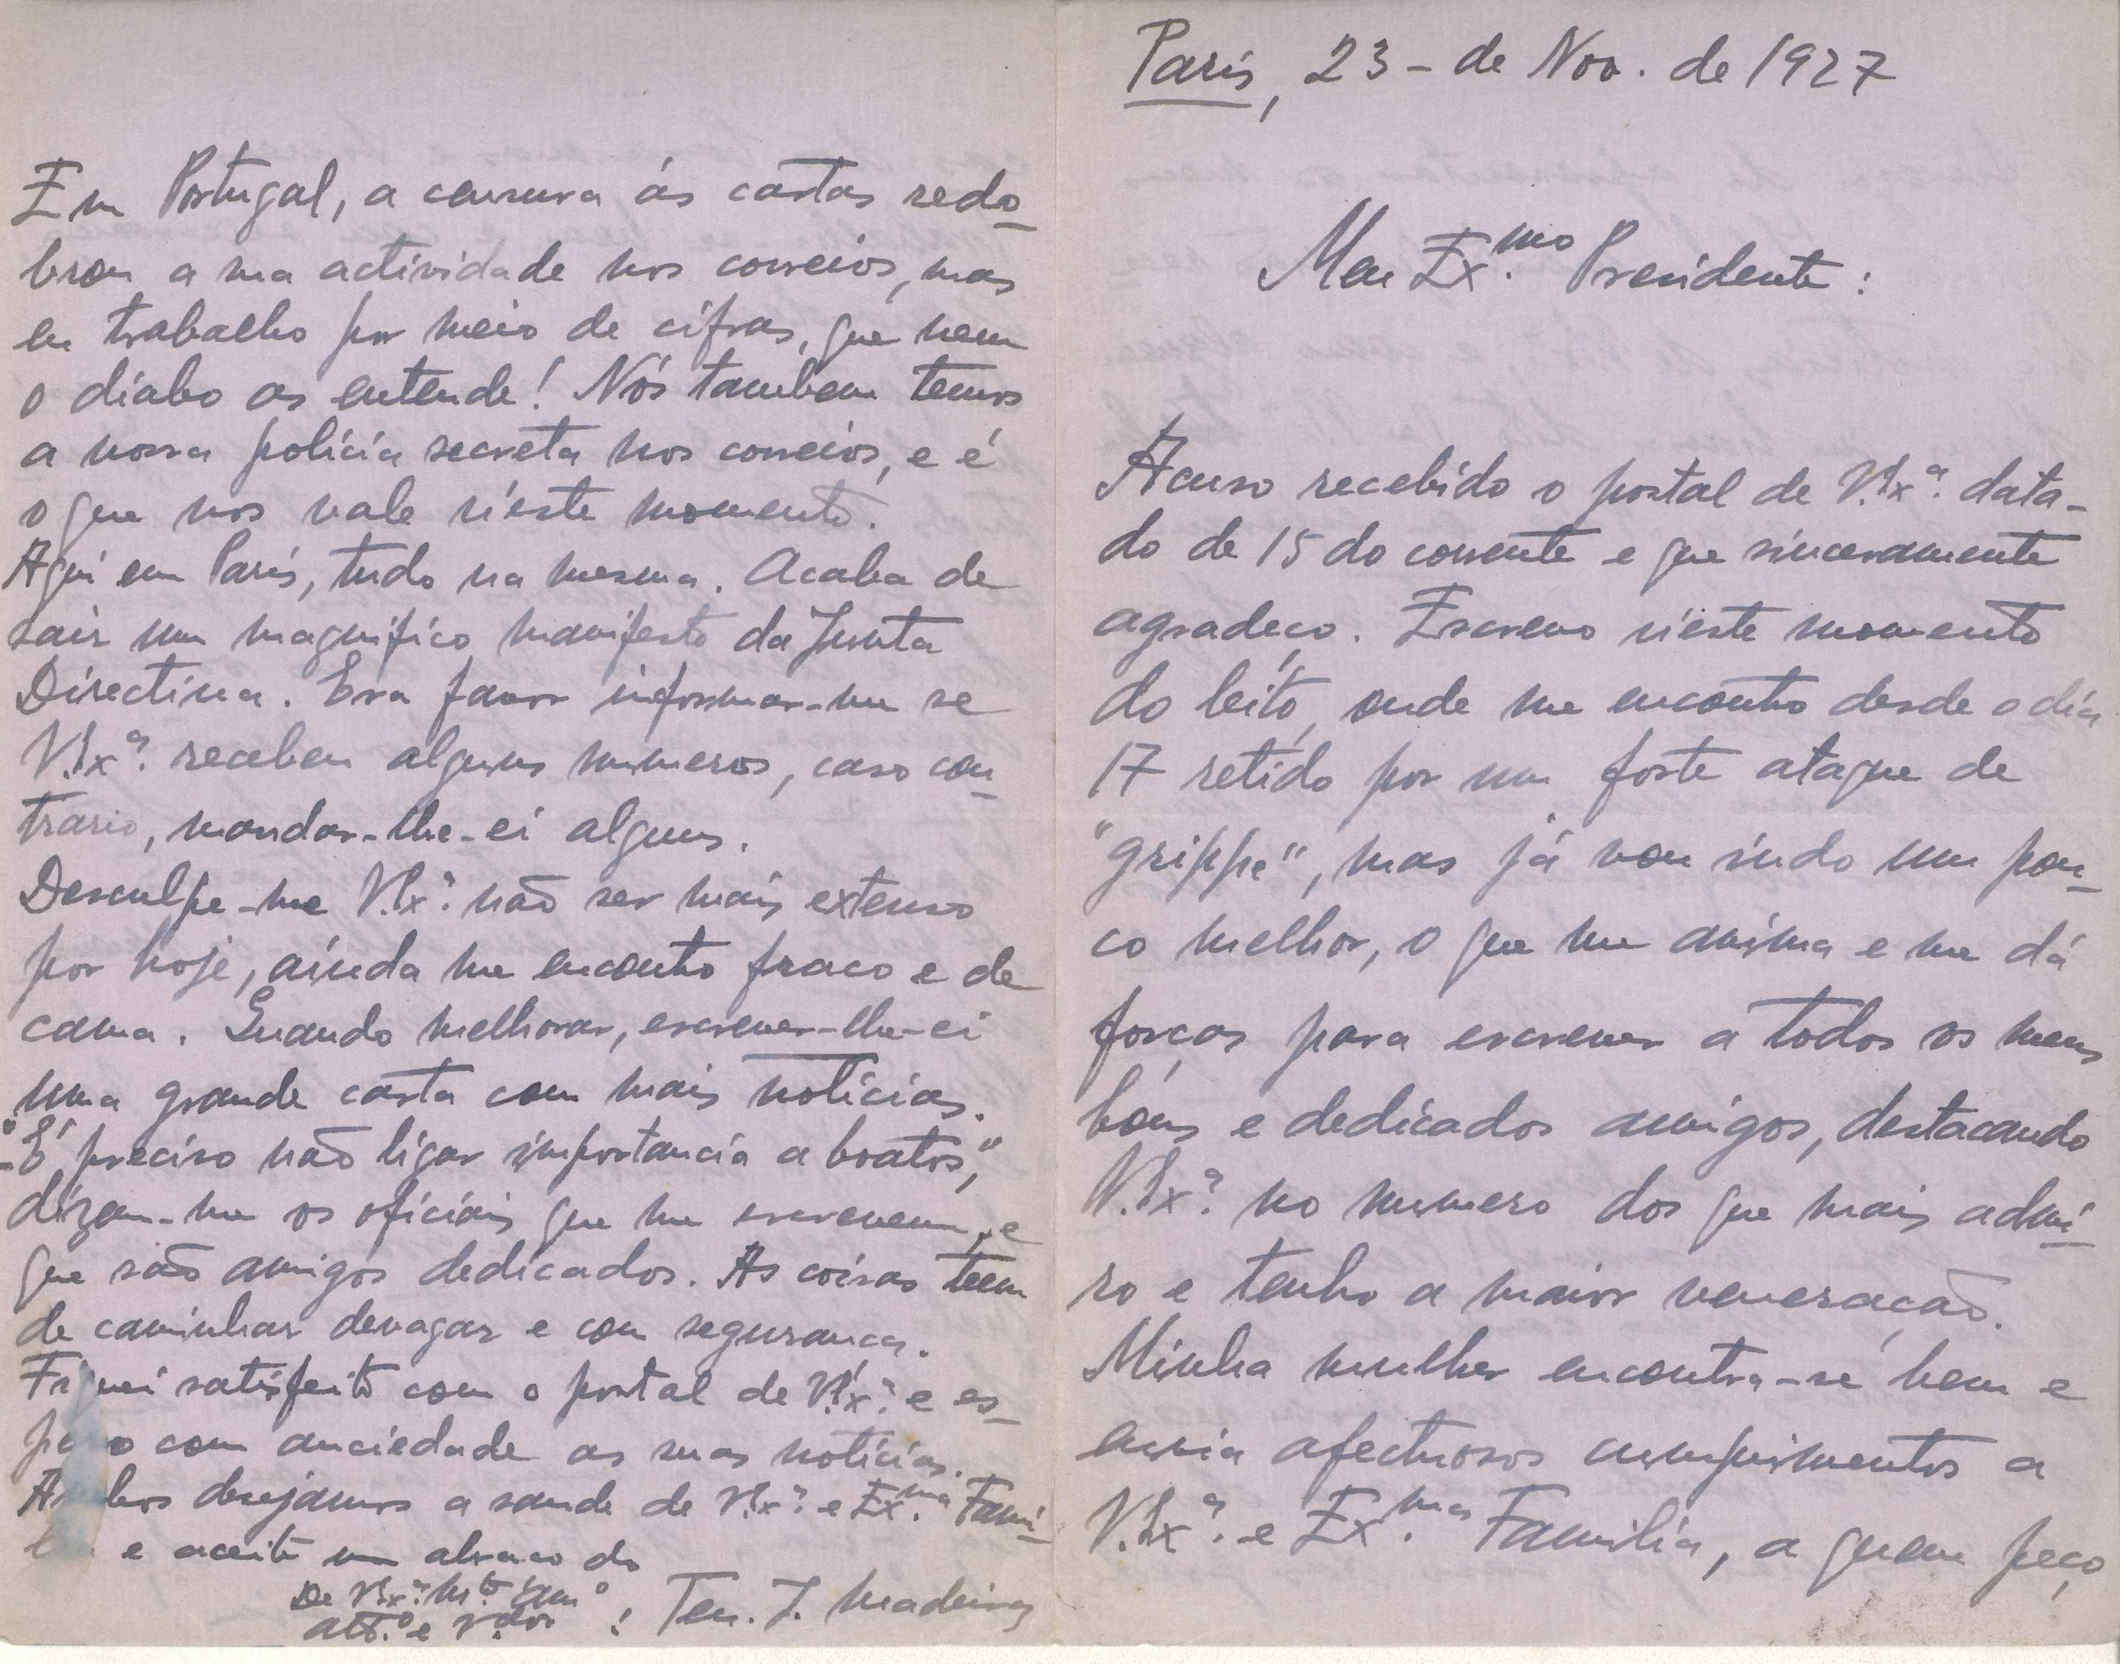 Paris, 23 - de Nov. de 1927
Meu Ex.mo Presidente:
Acuso recebido o postal de V.Ex.ª data-
do de 15 do corrente e que sinceramente
agradeço. Escrevo n'este momento
do leito, onde me encontro desde o dia
17 retido por um forte ataque de
"grippe", mas já vou indo um pou-
co melhor, o que me anima e me dá
forças para escrever a todos os meus
bons e dedicados amigos, destacando
V.Ex.ª no numero dos que mais admi-
ro e tenho a maior veneração.
Minha mulher encontra-se bem e
envia afectuosos cumprimentos a
V.Ex.ª e Ex.ma Familia, a quem peço
Em Portugal, a censura ás cartas redo-
brou a sua actividade nos correios, mas
eu trabalho por meio de cifras, que nem
o diabo as entende! Nós tambem temos
a nossa policia secreta nos correios, e é
o que nos vale n'este momento.
Aqui em Paris, tudo na mesma. Acaba de
sair um magnifico manifesto da Junta
Directiva. Era favor informar-me se
V.Ex.ª recebeu alguns numeros, caso con-
trario, mandar-lhe-ei alguns.
Desculpe-me V.Ex.ª não ser mais extenso
por hoje, ainda me encontro fraco e de
cama. Quando melhorar, escrever-lhe-ei
uma grande carta com mais noticias.
-"É preciso não ligar importancia a boatos",
dizem-me os oficiais que me escrevem, e
que são amigos dedicados. As coisas teem
de caminhar devagar e com segurança.
Fiquei satisfeito com o postal de V.Ex.ª e es-
pero com anciedade as suas noticias.
Ambos desejamos a saude de V.Ex.ª e Ex.ma Fami-
lia e aceite um abraço do
De V.Ex.ª m.to am.o
att.o e v.dor : Ten. J. Madeira